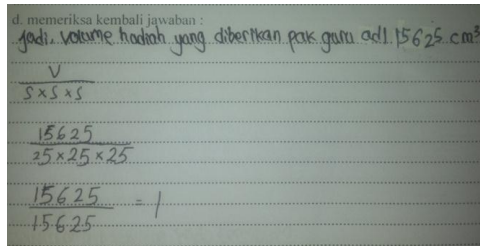 d. memeriksa kembali jawaban :
Jadi, volume hadiah yang diberikan pak guru adl 15625 cm³
V
S × S × S
15625
25 × 25 × 25
15625 = 1
15625